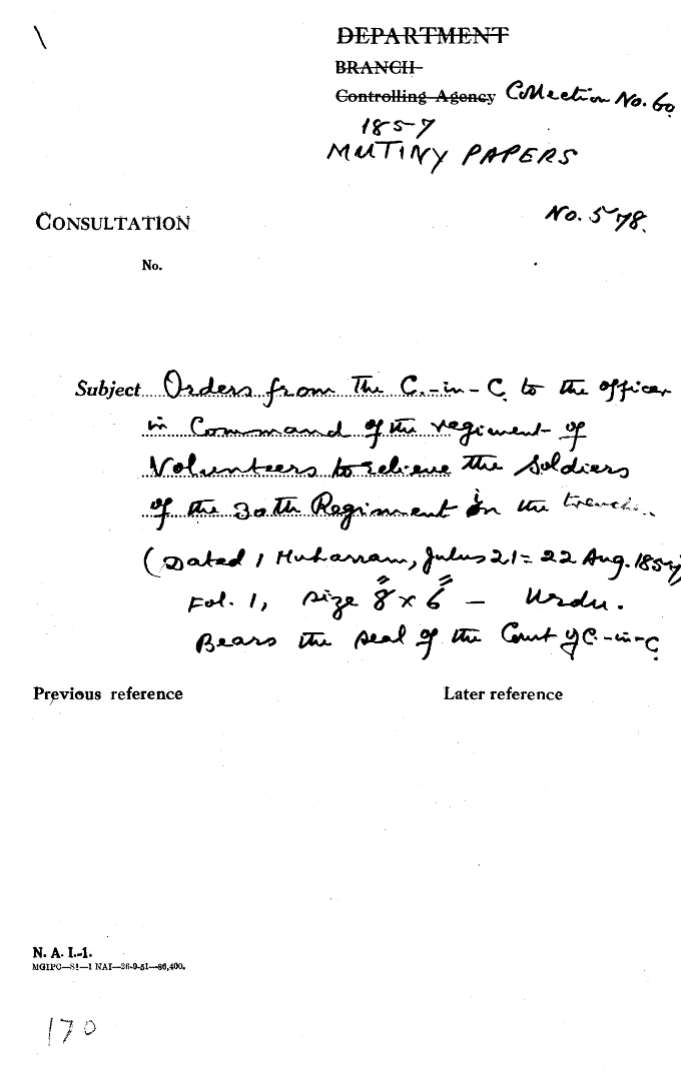 DEPARTMENT
BRANCH
Controlling Agency Collection No. 60
1857
MUTINY PAPERS
CONSULTATION
No. 578.
No.
Subject Orders from the C.-in-C. to the officer
in Command of the regiment of
Volunteers to relieve the Soldiers
of the 30th Regiment in the
(Dated 1 Muharram, Julus 21 = 22 Aug. 1857)
Fol. 1, size 8" x 6" — Urdu.
Bears the seal of the Court of C.-in-C
Previous reference
Later reference
N. A. I.-1.
MGIPC—S1—1 NAI—26-9-51—86,400.
170